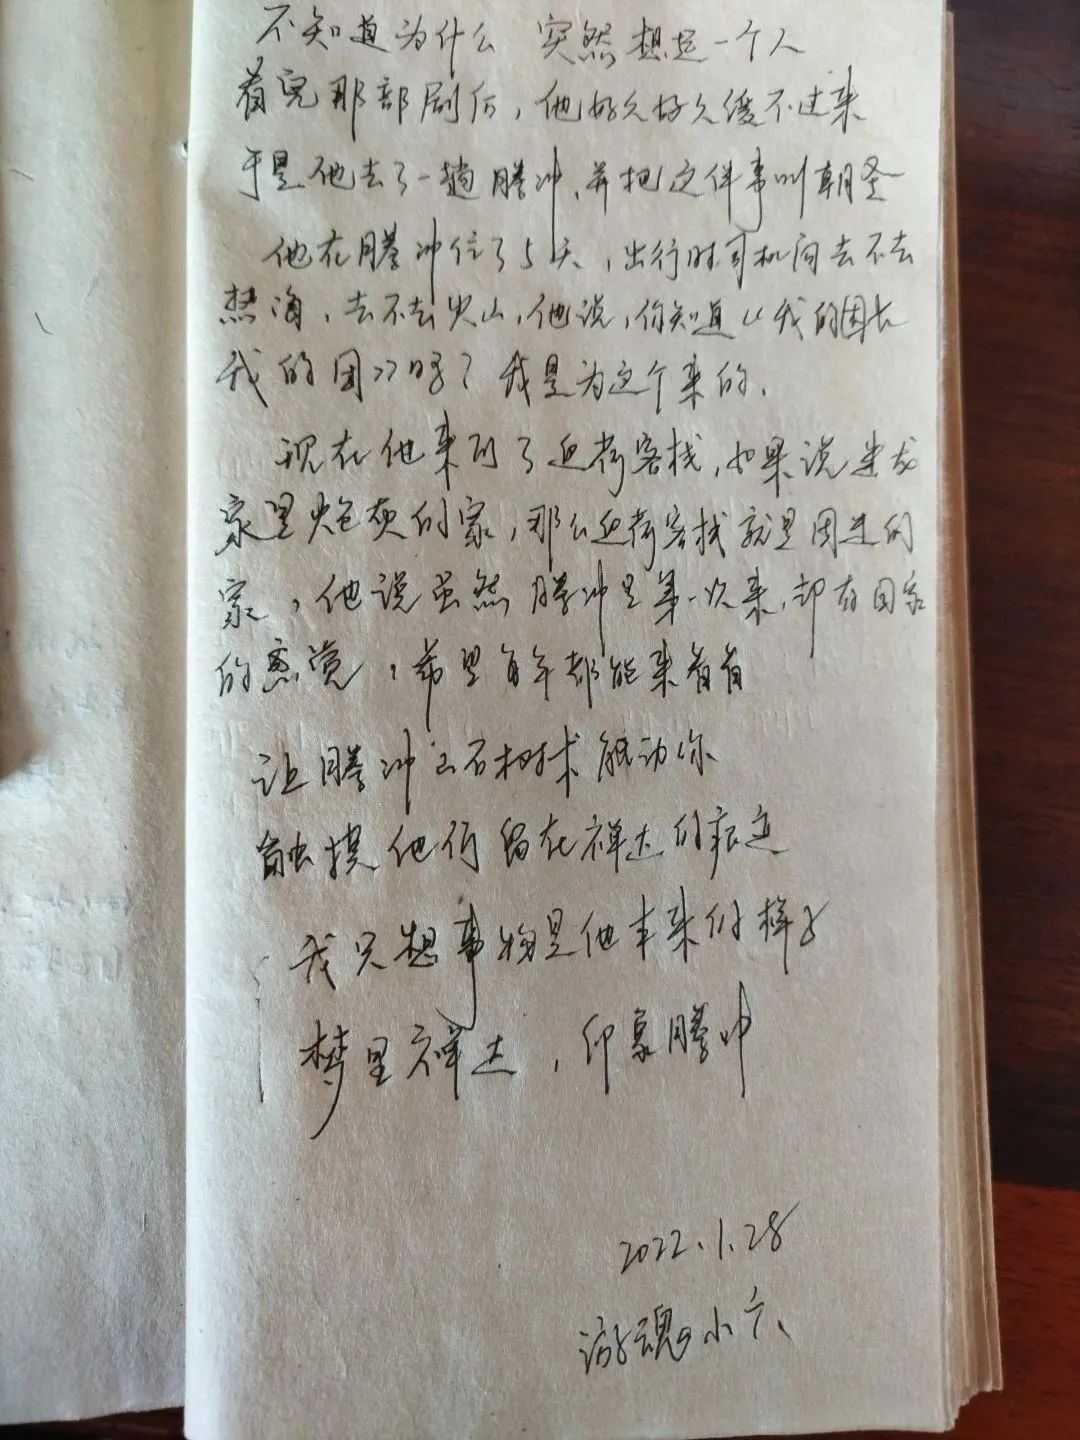 不知道为什么 突然想起一个人
看完那部剧后，他好久好久缓不过来
于是他去了一趟腾冲，并把这件事叫朝圣
他在腾冲住了5天，出行时司机问去不去
热海，去不去火山，他说，你知道“我的团长
我的团”吗？我是为这个来的。
现在他来到了迎荷客栈，如果说迷龙
家是炮灰的家，那么迎荷客栈就是团迷的
家，他说虽然腾冲是第一次来，却有回家
的感觉，希望每年都能来看看
让腾冲玉石树木触动你
触摸他们留在禅达的痕迹
我只想事物是他本来的样子
梦里禅达，印象腾冲
2022.1.28
游魂小六